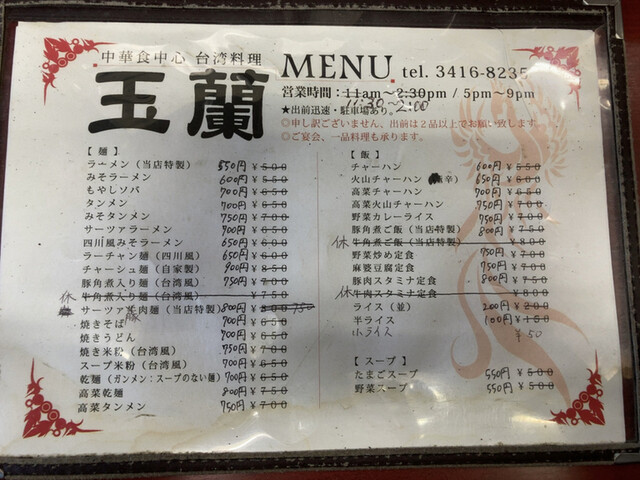 中華食中心 台湾料理
玉蘭
MENU tel. 3416-8235
営業時間：11am～2:30pm / 5pm～9pm
11:30～2:00
★出前迅速・駐車場あり。
◎申し訳ございません、出前は2品以上でお願い致します。
◎ご宴会、一品料理も承ります。
【 麺 】
ラーメン（当店特製） 550円 ¥500
みそラーメン 600円 ¥550
もやしソバ 700円 ¥650
タンメン 700円 ¥650
みそタンメン 750円 ¥700
サーツァラーメン 700円 ¥650
四川風みそラーメン 650円 ¥600
ラーチャン麺（四川風） 650円 ¥600
チャーシュ麺（自家製） 900円 ¥850
豚角煮入り麺（台湾風） 750円 ¥700
休 牛角煮入り麺（台湾風） ¥750
サーツァ羊肉麺（当店特製） 800円 ¥800 750
豚
焼きそば 700円 ¥650
焼きうどん 700円 ¥650
焼き米粉（台湾風） 750円 ¥700
スープ米粉（台湾風） 700円 ¥650
乾麺（ガンメン：スープのない麺） 700円 ¥650
高菜乾麺 800円 ¥750
高菜タンメン 750円 ¥700
【 飯 】
チャーハン 600円 ¥550
火山チャーハン 辛） 650円 ¥600
高菜チャーハン 700円 ¥650
高菜火山チャーハン 750円 ¥700
野菜カレーライス 750円 ¥700
豚角煮ご飯（当店特製） 750円 ¥700
休 牛角煮ご飯（当店特製） ¥800
野菜炒め定食 750円 ¥700
麻婆豆腐定食 750円 ¥700
豚肉スタミナ定食 750円 ¥700
休 牛肉スタミナ定食 ¥800
ライス（並） 200円 ¥200
半ライス 100円 ¥150
小ライス ¥50
【 スープ 】
たまごスープ 550円 ¥500
野菜スープ 550円 ¥500